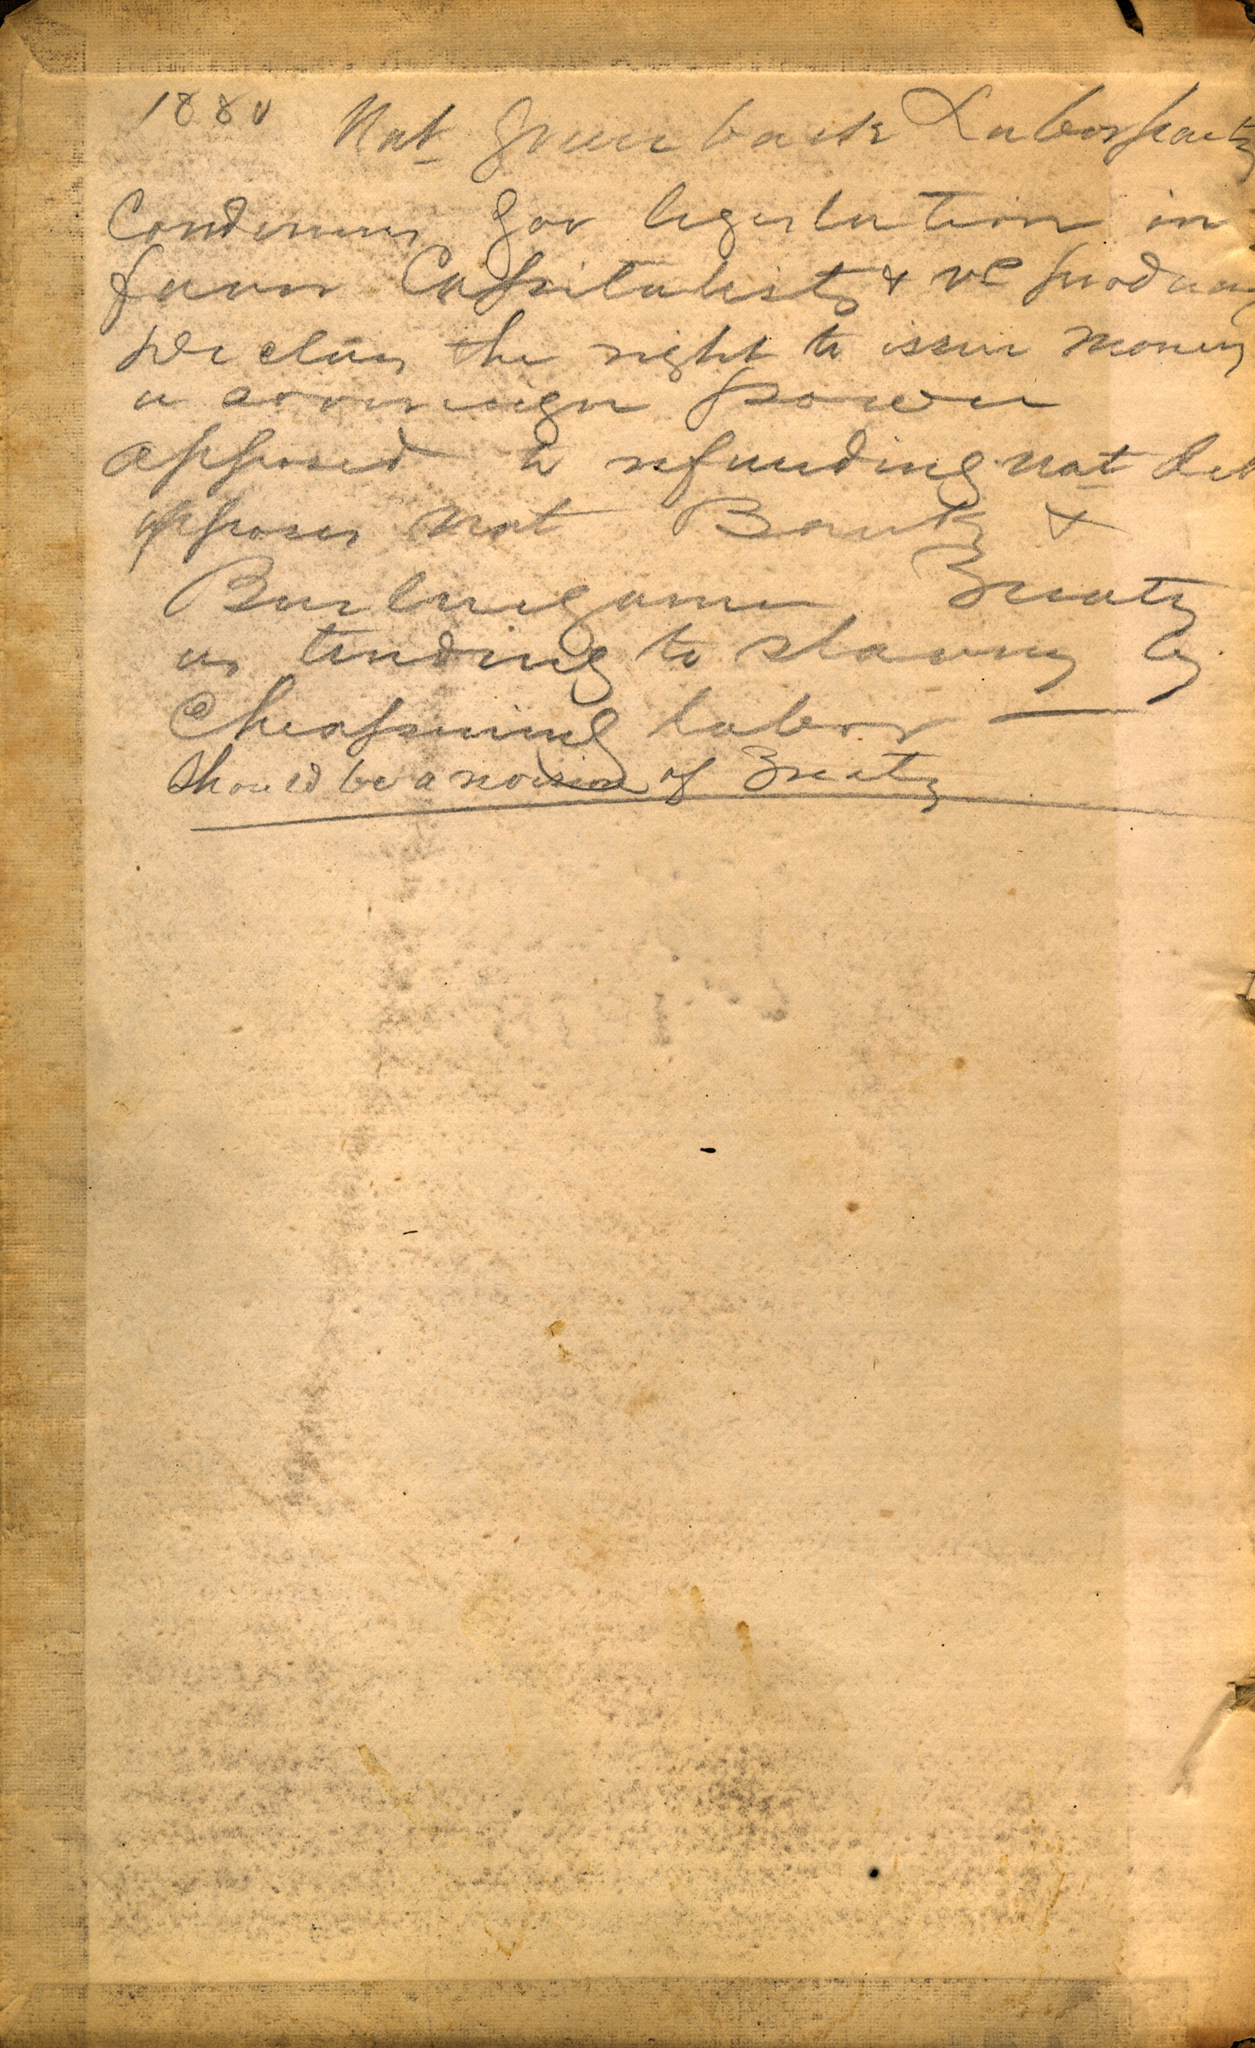 1880 Nat Greenback Labor party
Condemns gov legislation in
favor Capitalists & vs producers
declares the right to issue money
a sovereign power
opposed to refunding nat deb
opposes nat Banks &
Burlingame Treaty
as tending to slavery by
cheapening labor —
should be a revision of Treaty